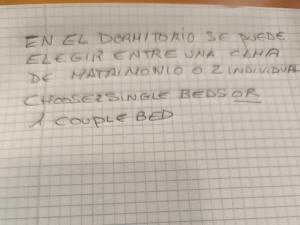 EN EL DORMITORIO SE PUEDE
ELEGIR ENTRE UNA CAMA
DE MATRIMONIO O 2 INDIVIDUAL
CHOOSE 2 SINGLE BEDS OR
1 COUPLE BED